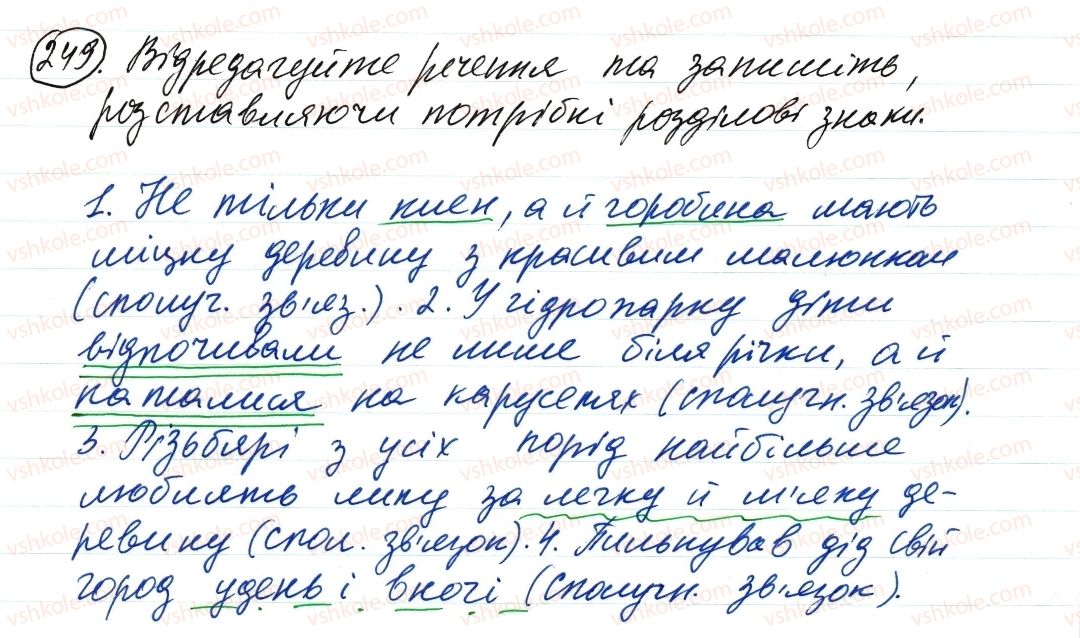 249. Відредагуйте речення та запишіть,
розставляючи потрібні розділові знаки.
1. Не тільки клен, а й горобина мають
міцну деревину з красивим малюнком
(сполуч. зв'яз.). 2. У гідропарку діти
відпочивали не лише біля річки, а й
каталися на каруселях (сполучн. зв'язок).
3. Різьбярі з усіх порід найбільше
люблять липу за легку й м'яку де-
ревину (спол. зв'язок). 4. Пильнував дід свій
город удень і вночі (сполучн. зв'язок).